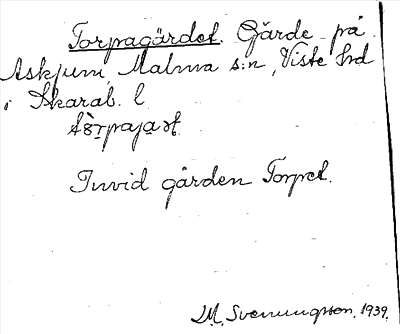 Torpagärdet. Gärde på
Askjum, Malma s:n, Viste hrd
i Skarab. l.
Invid gården Torpet.
M. Svenungsson. 1939.